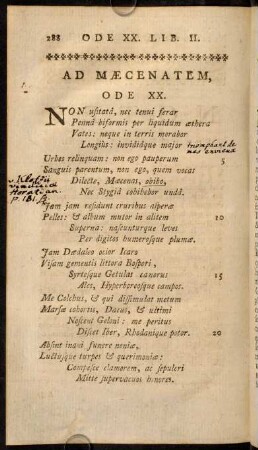 288 ODE XX. LIB. II.
AD MÆCENATEM,
ODE XX.
NON usitatâ, nec tenui ferar
Pennâ biformis per liquidum æthera
Vates: neque in terris morabor
Longiùs: invidiâque major
Urbes relinquam: non ego pauperum 5
Sanguis parentum, non ego, quem vocas
Dilecte, Mæcenas, obibo,
Nec Stygiâ cohibebor undâ.
Jam jam residunt cruribus asperæ
Pelles: & album mutor in alitem 10
Superna: nascunturque leves
Per digitos humerosque plumæ.
Jam Dædaleo ocior Icaro
Visam gementis littora Bospori,
Syrtesque Getulas canorus 15
Ales, Hyperboreosque campos.
Me Colchus, & qui dissimulat metum
Marsæ cohortis, Dacus, & ultimi
Noscent Geloni: me peritus
Discet Iber, Rhodanique potor. 20
Absint inani funere neniæ,
Luctusque turpes & querimoniæ:
Compesce clamorem, ac sepulcri
Mitte supervacuos honores.